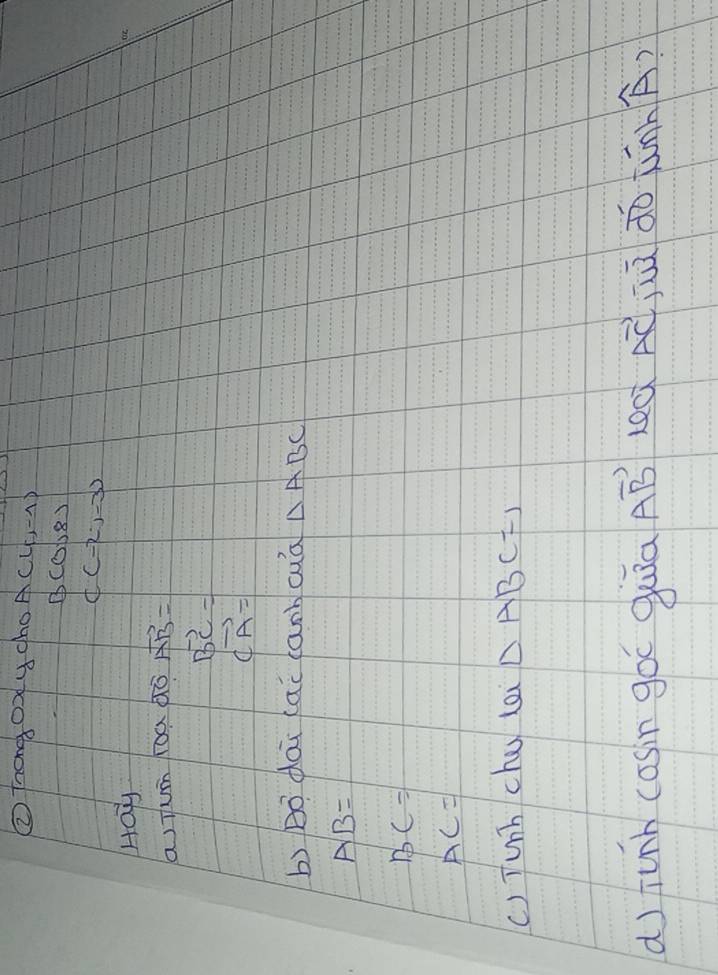 ② Trong oxy cho A(4,-1)
B(0,8)
C(-2,-3)
Hãy
a) Tìm toạ độ AB→ =
BC→ =
CA→ =
b) Độ dài các cạnh của Δ ABC
AB =
BC =
AC =
c) Tính chu vi Δ ABC = ,
d) Tính cosin góc giữa AB→ và AC→, từ đó tính Â?